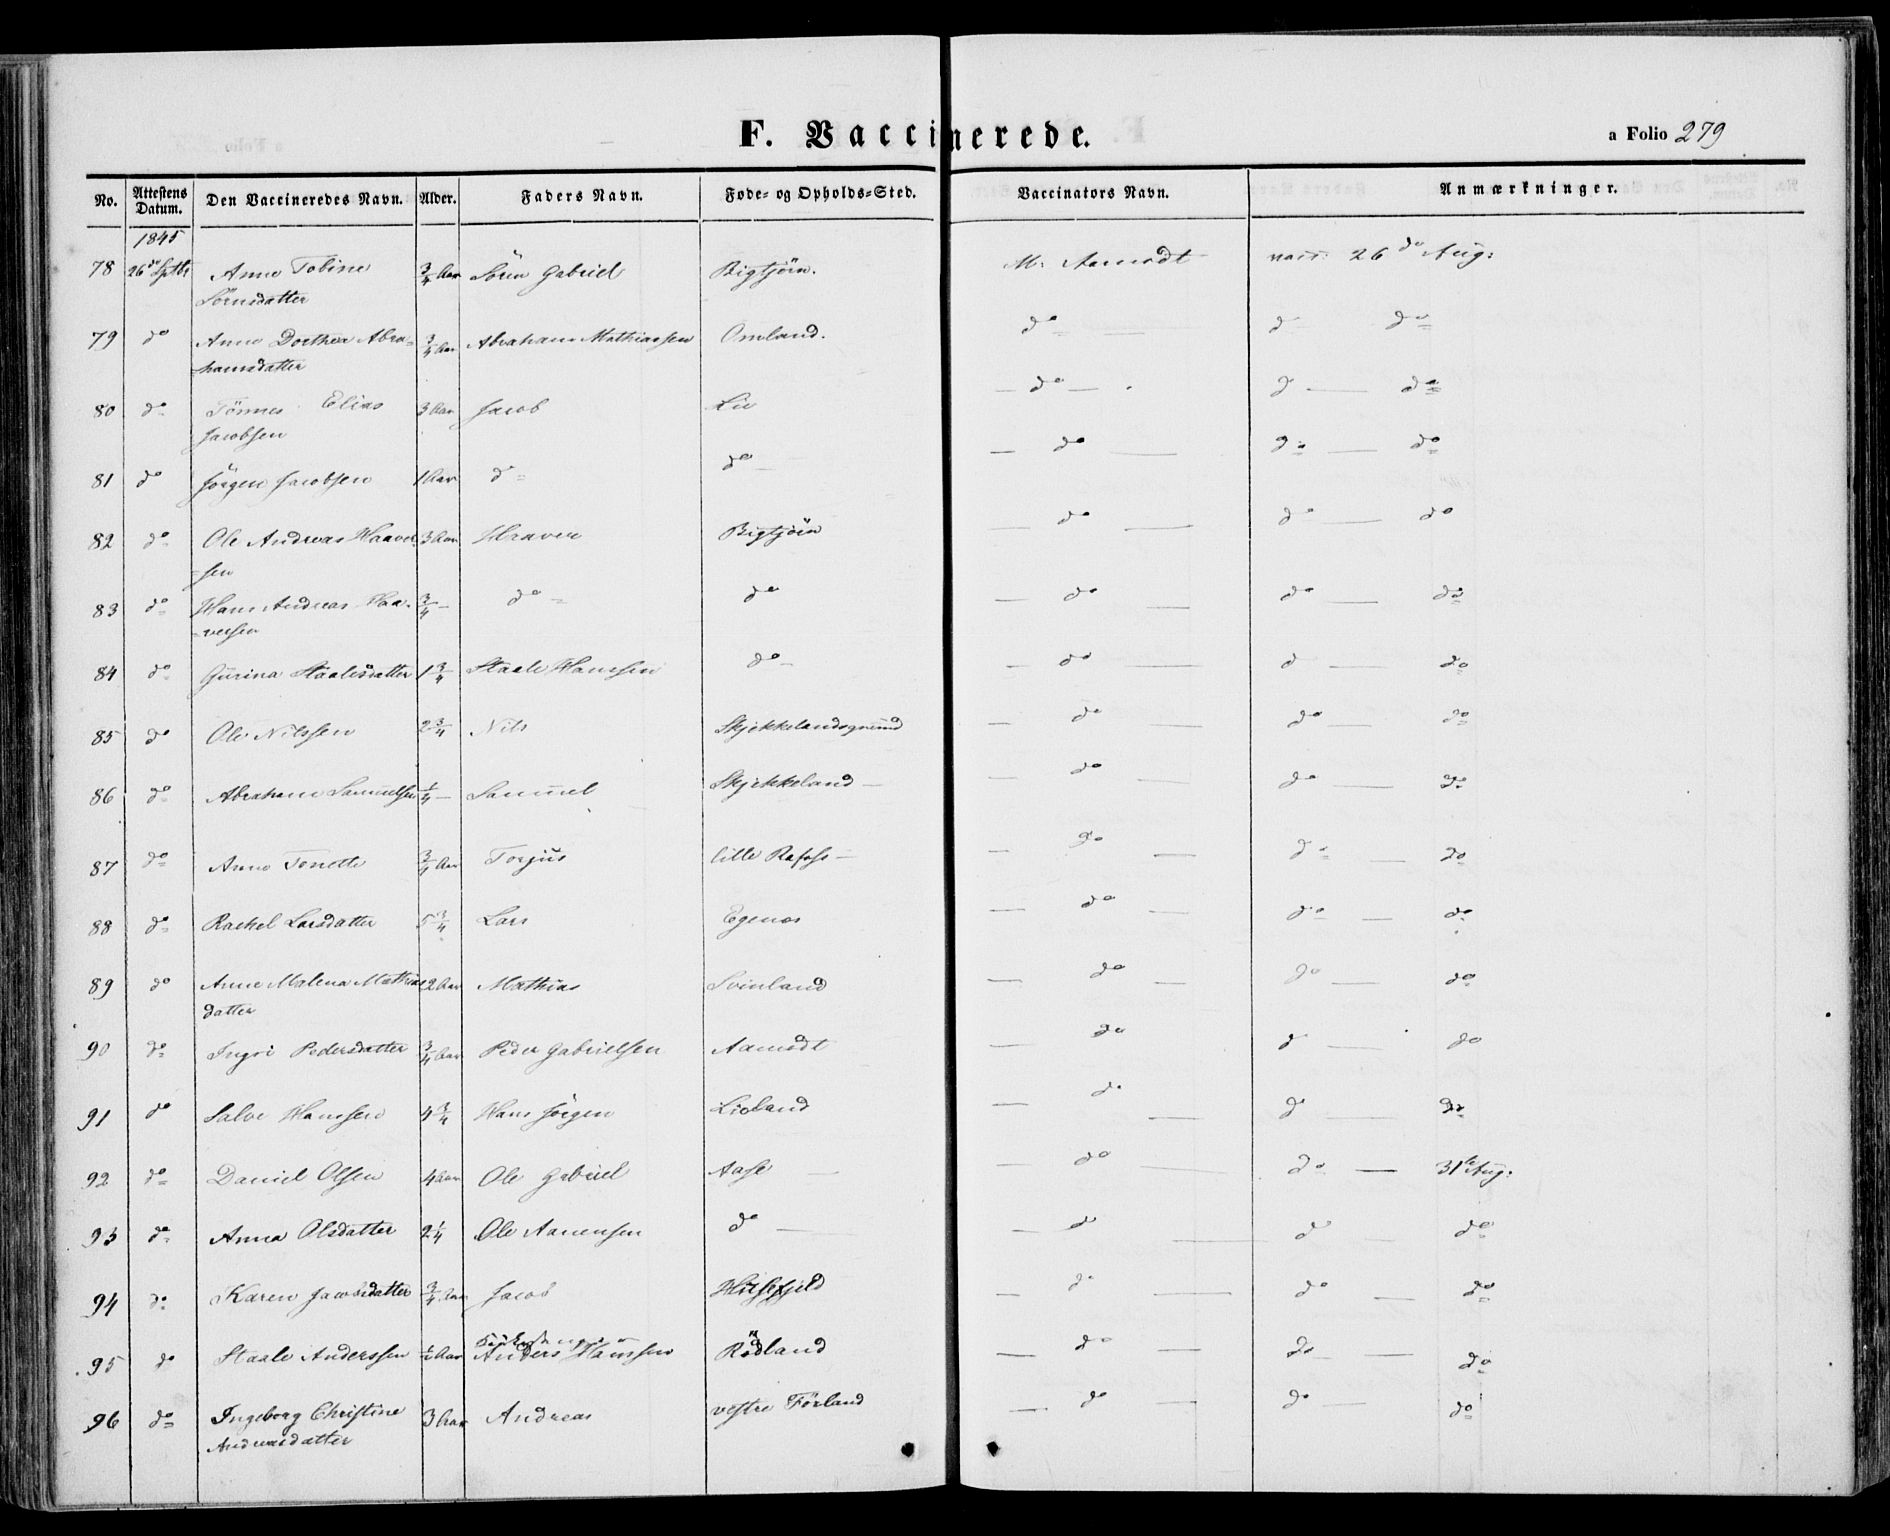 F. Vaccinerede.
a Folio 279
No. Attestens Datum. Den Vaccineredes Navn. Alder. Faders Navn. Føde- og Opholds-Sted. Vaccinators Navn. Anmærkninger.
1845
78 26de Septbr Anne Tobine 3/4 Aar Sören Gabriel Bigtjörn. M: Aamodt vacc: 26de Aug:
Sörensdatter
79 do Anne Dorthea Abra= 3/4 Aar Abraham Mathiassen Omland. do do do
hamsdatter
80 do Tönnes Elias 3 Aar Jacob Lie do do do
Jacobsen
81 do Jörgen Jacobsen 1 Aar do do do do do
82 do Ole Andreas Haaver= 3 Aar Haaver Bigtjörn do do do
=sen
83 do Hans Andreas Haa= 3/4 do do do do do
=versen
84 do Gurina Staalesdatter 1 3/4 Staale Hanssen do do do do
85 do Ole Nilssen 2 3/4 Nils Skjekkelandsgrund do do do
86 do Abraham Samuelsen 1/4 Samuel Skjekkeland do do do
87 do Anne Tonette 3/4 Aar Torjus lille Rafoss do do do
88 do Rachel Larsdatter 5 3/4 Lars Egenes do do do
89 do Anne Malena Mathias 2 Aar Mathias Svinland do do do
datter
90 do Ingri Pedersdatter 3/4 Aar Peder Gabrielsen Aamodt do do do
91 do Salve Hanssen 4 3/4 Hans Jörgen Lioland do do do
92 do Daniel Olsen 4 Aar Ole Gabriel Aase do do 31te Aug:
93 do Anna Olsdatter 2 1/4 Ole Aanensen do do do do
94 do Karen Jacobsdatter 3/4 Aar Jacob Hilsefjeld do do do
95 do Staale Anderssen 1/2 Aar Anders Hanssen Rödland do do do
96 do Ingeborg Christine 3 Aar Andreas vestre Förland do do do
Andreasdatter